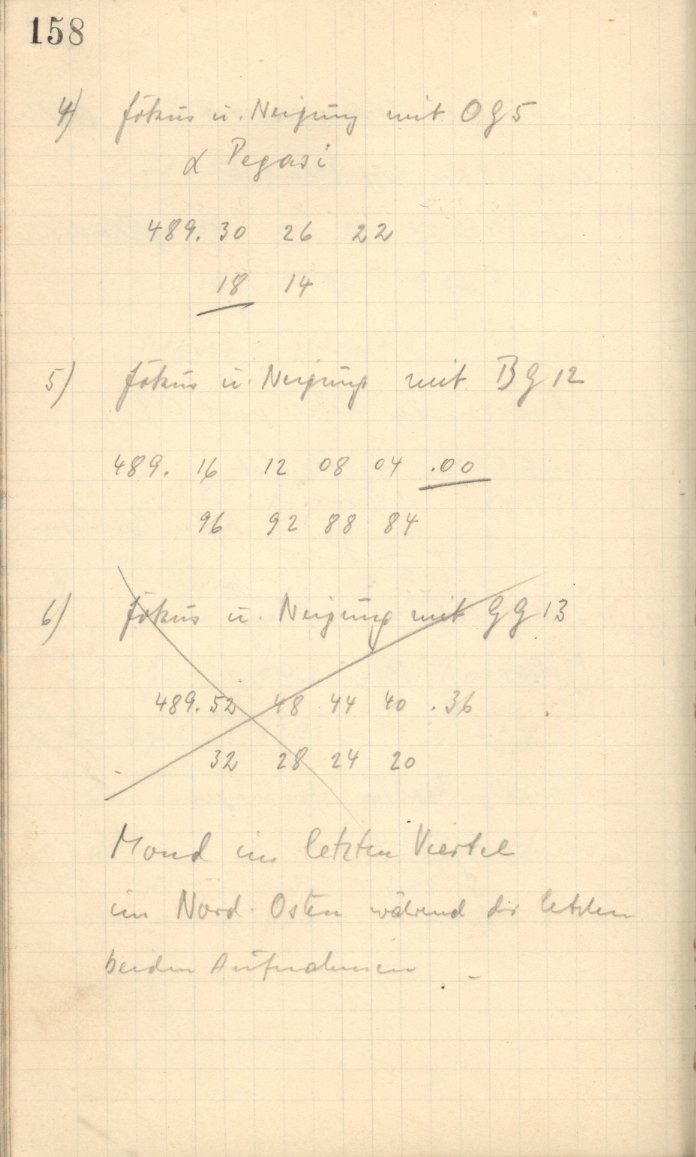 158
4) Fokus u. Neigung mit OG5
α Pegasi
489. 30 26 22
18 14
5) Fokus u. Neigung mit BG 12
489. 16 12 08 04 .00
96 92 88 84
6) Fokus u. Neigung mit GG 13
489. 52 48 44 40 .36
32 28 24 20
Mond im letzten Viertel
im Nord-Osten während der letzten
beiden Aufnahmen